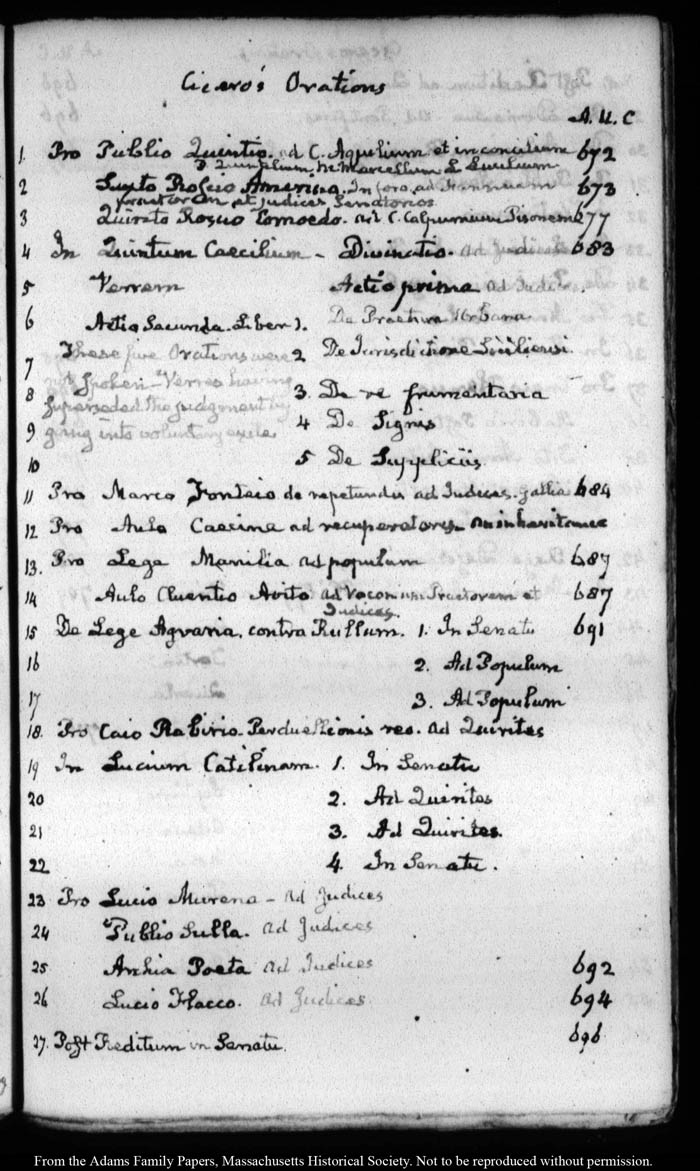 Cicero's Orations
A. U. C
1. Pro Publio Quintio. ad C. Aquilium et in concilium 672
P. Quinctilium, M. Marcellum L. Lucilium
2 Sexto Roscio Amerino. In foro, ad Fannium 673
praetorem et judices Senatorios
3 Quinto Roscio Comoedo. ad C. Calpurnium Pisonem 677
4 In Quintum Caecilium - Divinatio. ad Judices 683
5 Verrem Actio prima ad Judices.
6 Actio Secunda. Liber 1. De Praetura Urbana
7 These five Orations were 2 De Jurisdictione Siciliensi
8 not spoken - Verres having 3. De re frumentaria
superseded the judgment by
9 going into voluntary exile 4 De Signis
10 5 De Suppliciis
11 Pro Marco Fonteio de repetundis ad Judices. gallia 684
12 Pro Aulo Caecina ad recuperatores - an inheritance
13. Pro Lege Manilia ad populum 687
14 Aulo Cluentio Avito ad Voconium Praetorem et 687
Judices
15 De Lege Agraria, contra Rullum. 1. In Senatu 691
16 2. Ad Populum
17 3. Ad Populum
18. Pro Caio Rabirio. Perduellionis reo. ad Quirites
19 In Lucium Catilinam. 1. In Senatu
20 2. Ad Quirites
21 3. Ad Quirites.
22 4. In Senatu.
23 Pro Lucio Murena - ad Judices
24 Publio Sulla. ad Judices
25 Archia Poeta ad Judices 692
26 Lucio Flacco. ad Judices 694
27. Post Reditum in Senatu. 696
From the Adams Family Papers, Massachusetts Historical Society. Not to be reproduced without permission.